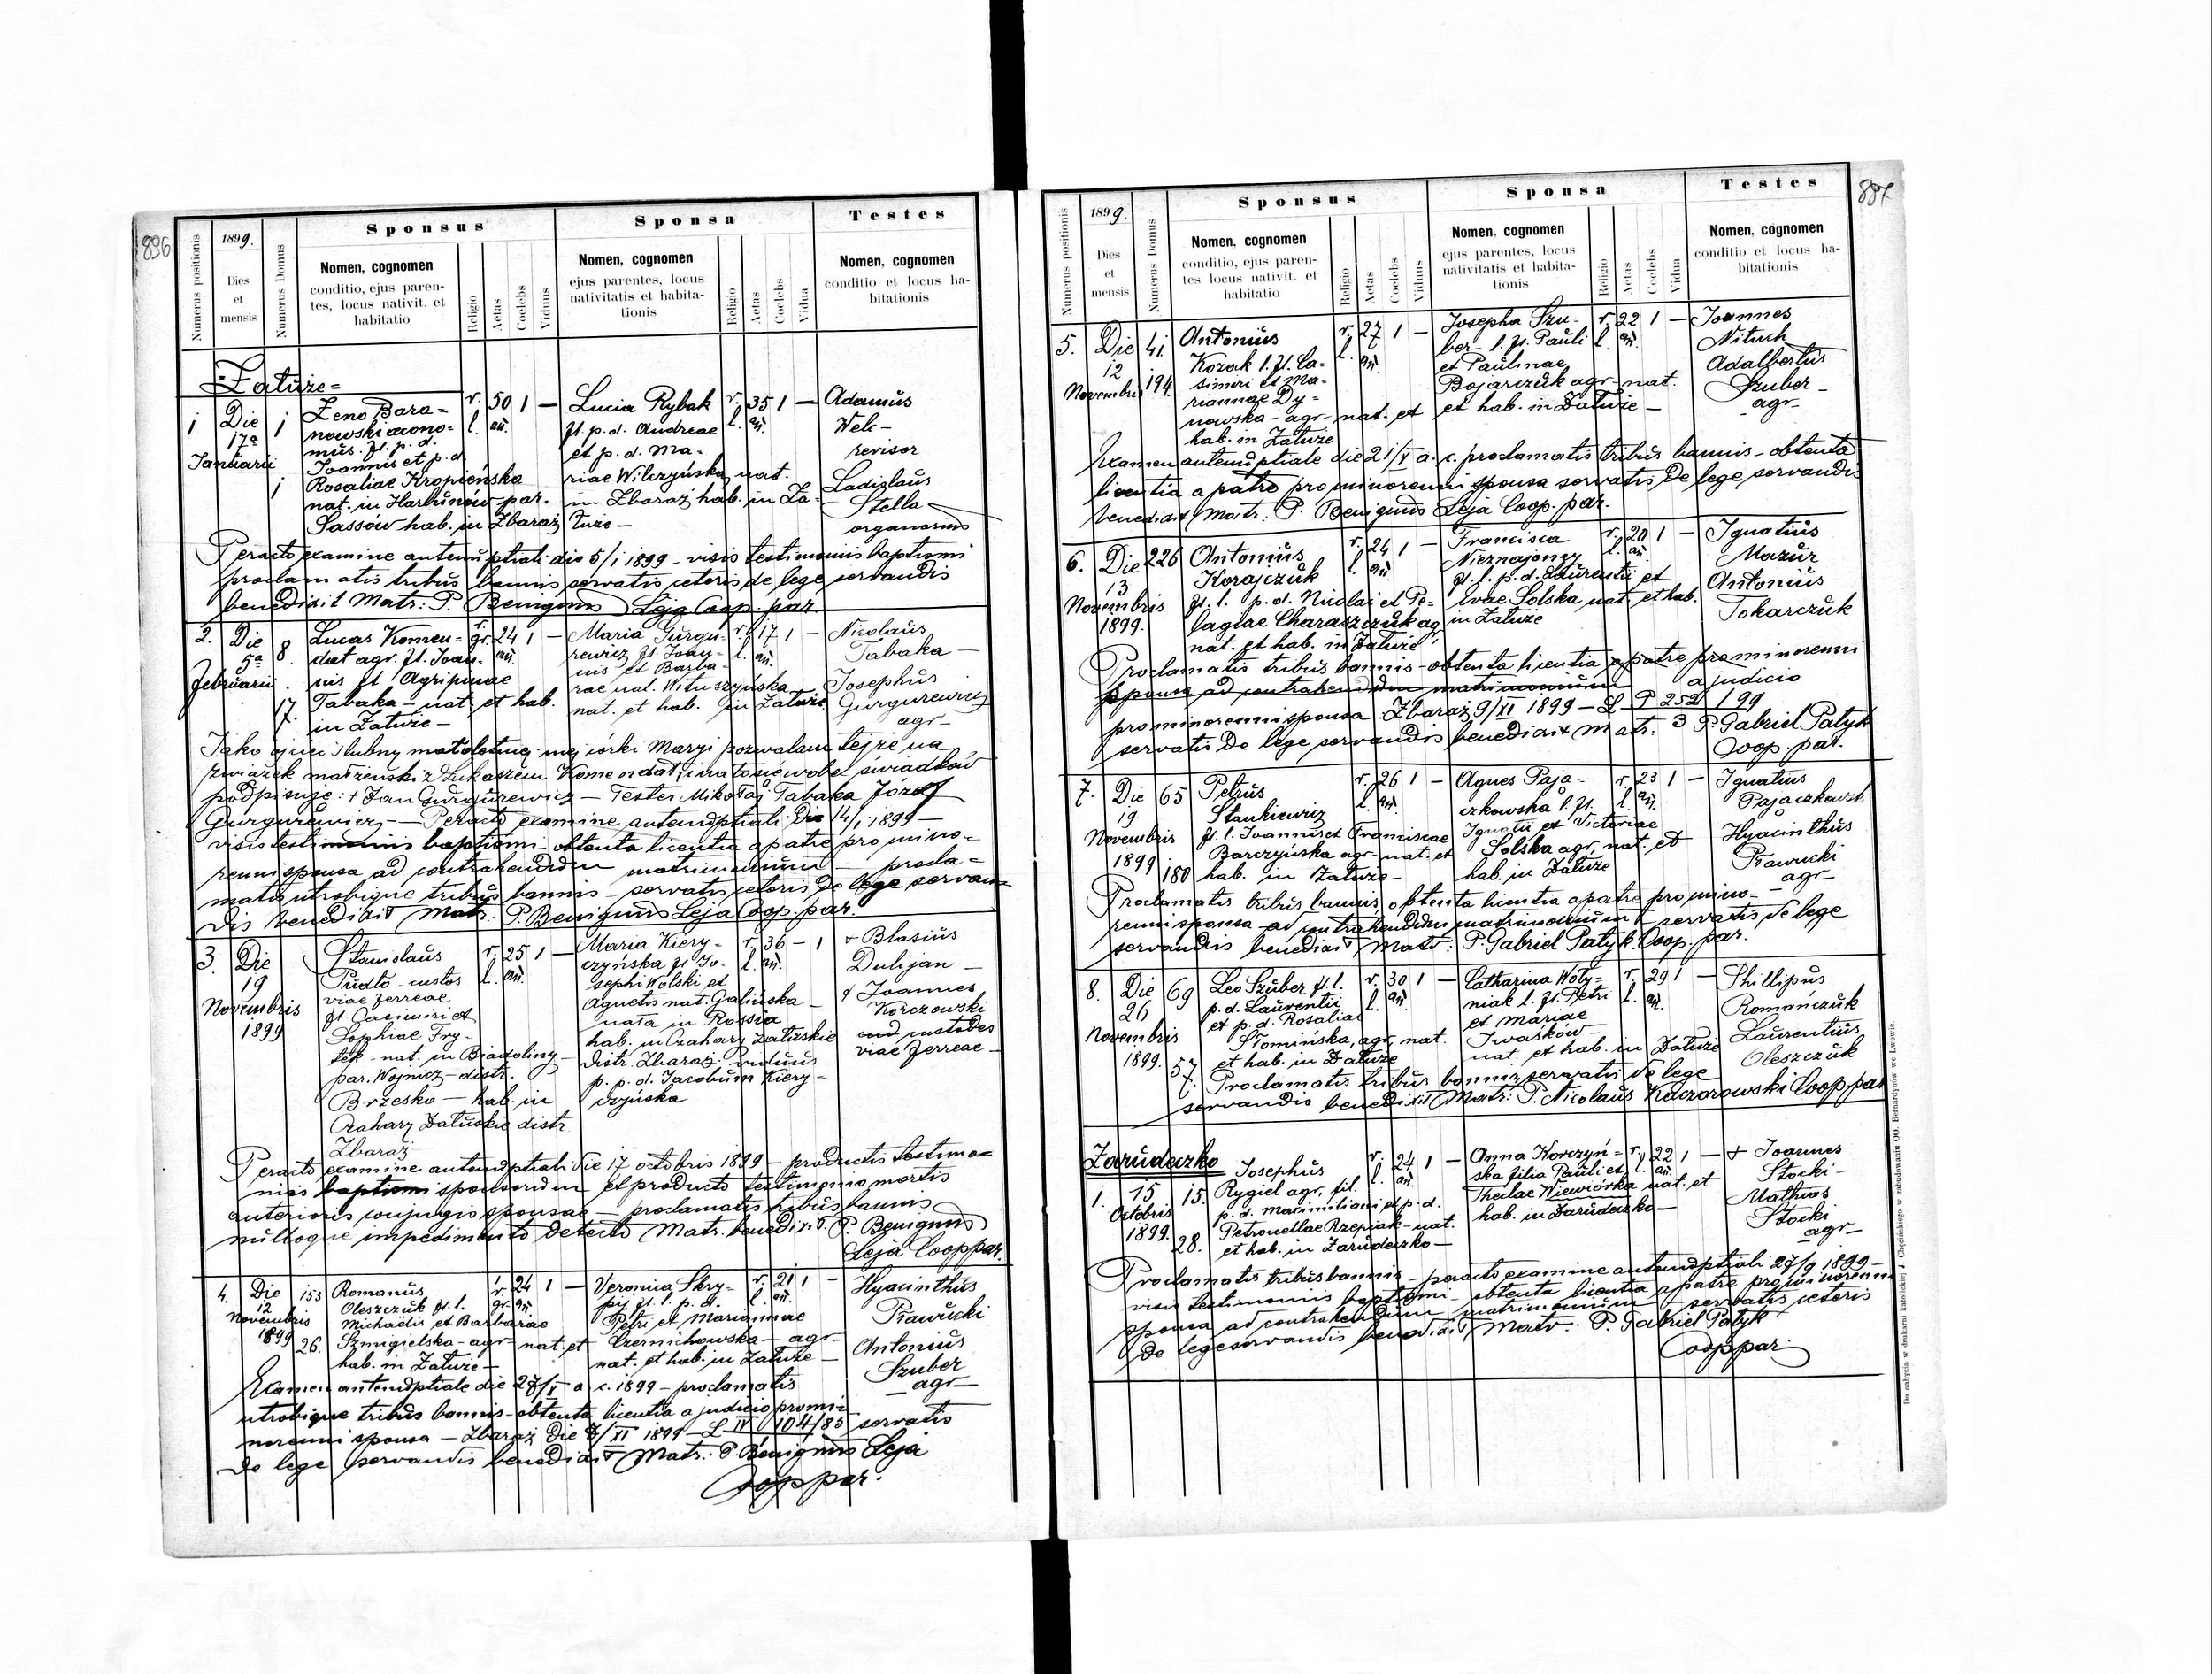 896
Numerus positionis
1899.
Dies
et
mensis
Numerus Domus
Sponsus
Nomen, cognomen
conditio, ejus paren-
tes, locus nativit. et
habitatio
Religio
Aetas
Coelebs
Viduus
Sponsa
Nomen, cognomen
ejus parentes, locus
nativitatis et habita-
tionis
Religio
Aetas
Coelebs
Vidua
Testes
Nomen, cognomen
conditio et locus ha-
bitationis
Załuże=
1 Die 17a Januarii 1 1
Zeno Bara=
nowski œcono=
mus. fl. p. d.
Joannis et p. d.
Rosaliae Kropieńska
nat. in Harbunów par.
Sassów hab. in Zbaraż
r. l. 50 an. 1 —
Lucia Rybak
fl. p. d. Andreae
et p. d. Ma-
riae Wilczyńska nat.
in Zbaraż hab. in Za=
łuże —
r. l. 35 an. 1 —
Adamus
Welc —
revisor
Ladizlaus
Stella
organarius
Peracto examine antenuptiali die 5/1 1899 – visis testimoniis baptismi
proclamatis tribus bannis servatis ceteris de lege servandis
benedixit Matr: P. Benignus Leja Coop. par.
2. Die 5a Februarii 8 17.
Lucas Komen=
dat agr. fl. Joan-
nis et Agripinae
Tabaka – nat. et hab.
in Załuże —
gr. 24 1 — an.
Maria Gurgu-
rewicz fl. Joan-
nis et Barba-
rae nat. Wituszyńska
nat. et hab. in Załuże
r. l. 17 an. 1 —
Nicolaus
Tabaka —
Josephus
Gurgurewicz
agr —
Jako ojciec ślubny małoletniej mej córki Maryi pozwalam tejże na
związek małżeński z Łukaszem Komendat, i na to się wobec świadków
podpisuję: + Jan Gurgurewicz — Testes Mikołaj Tabaka Józef
Gurgurewicz, — Peracto examine antenuptiali die 14/1 1899 —
visis testimoniis baptismi – obtenta licentia a patre pro mino-
renni sponsa ad contrahendum matrimonium — procla=
matis utrobique tribus bannis – servatis ceteris de lege servan=
dis benedixit Matr: P. Benignus Leja Coop. par.
3. Die 19 Novembris 1899
Stanislaus
Pudło – custos
viae ferreae
fl. Casimiri et
Sophiae Fry-
tek – nat. in Biadoliny –
par. Wojnicz – distr.
Brzesko — hab. in
Czahary Załuskie distr.
Zbaraż
r. l. 25 an. 1 —
Maria Kiery-
czyńska fl. Jo-
sephi Wolski et
Agnetis nat. Galińska —
nata in Rossia
hab. in Czahary Załuskie
distr. Zbaraż. viduus
p. p. d. Jacobum Kiery-
czyńska
r. l. 36 an. — 1
+ Blasius
Dulijan —
+ Joannes
Korczowski
custodes
viae ferreae —
Peracto examine antenuptiali die 17 octobris 1899 – productis testimo=
niis baptismi sponsorum et producto testimonio mortis
anterioris conjugis sponsae — proclamatis tribus bannis
nulloque impedimento detecto Matr. benedixit. P. Benignus
Leja Coop par.
4. Die 12 Novembris 1899 153 26.
Romanus
Oleszczuk fl. l.
Michaelis et Barbarae
Szmigielska – agr – nat. et
hab. in Załuże —
r. gr. 24 an. 1 —
Veronica Skry-
pij fl. l. p. d.
Petri et Mariannae
Czernichowska — agr —
nat. et hab. in Załuże —
r. l. 21 an. 1 —
Hyacinthus
Prawucki
Antonius
Szuber
— agr —
Examen antenuptiale die 27/X a. c. 1899 – proclamatis
utrobique tribus bannis – obtenta licentia a judicio promi=
norenni sponsa — Zbaraż die 8/XI 1899 – L IV 104/85 servatis
de lege servandis benedixit Matr: P. Benignus Leja
Coop par.
887
Numerus positionis
1899.
Dies
et
mensis
Numerus Domus
Sponsus
Nomen, cognomen
conditio, ejus paren-
tes locus nativit. et
habitatio
Religio
Aetas
Coelebs
Viduus
Sponsa
Nomen, cognomen
ejus parentes, locus
nativitatis et habita-
tionis
Religio
Aetas
Coelebs
Vidua
Testes
Nomen, cognomen
conditio et locus ha-
bitationis
5. Die 12 Novembris 41. 194.
Antonius
Kozak l. fl. Ca-
simiri et Ma-
riannae Dy-
nowska – agr – nat. et
hab. in Załuże
r. l. 27 an. 1 —
Josepha Szu-
ber – l. fl. Pauli
et Paulinae
Bojarczuk agr – nat.
et hab. in Załuże —
r. l. 22 an. 1 —
Joannes
Nituch
Adalbertus
Szuber —
agr —
Examen antenuptiale die 21/X a. c. proclamatis tribus bannis – obtenta
licentia a patre pro minorenni sponsa servatis de lege servandis
benedixit Matr: P. Benignus Leja Coop. par.
6. Die 13 Novembris 1899. 226
Antonius
Korajczuk
fl. l. p. d. Nicolai et Pe=
lagiae Charaszczuk ag
nat. et hab. in Załuże
r. l. 24 an. 1 —
Francisca
Nieznajomy
fl. l. p. d. Laurentii et
Evae Solska nat. et hab.
in Załuże
r. l. 20 an. 1 —
Ignatius
Mazur
Antonius
Tokarczuk
Proclamatis tribus bannis – obtenta licentia a patre pro minorenni
sponsa ad contrahendum matrimonium a judicio
pro minorenni sponsa Zbaraż 9/XI 1899 — L P 252/99
servatis de lege servandis benedixit Matr. P. Gabriel Patyk
Coop. par.
7. Die 19 Novembris 1899 65 180
Petrus
Stankiewicz
fl. l. Joannis et Franciscae
Barczyńska agr – nat. et
hab. in Załuże —
r. l. 26 an. 1 —
Agnes Paja-
czkowska l. fl.
Ignatii et Victoriae
Solska agr, nat. et
hab. in Załuże
r. l. 23 an. 1 —
Ignatius
Pajaczkowsk
Hyacinthus
Prawucki
— agr —
Proclamatis tribus bannis, obtenta licentia a patre pro mino=
renni sponsa ad contrahendum matrimonium servatis de lege
servandis benedixit Matr: P. Gabriel Patyk Coop. par.
8. Die 26 Novembris 1899. 69 57.
Leo Szuber fl. l.
p. d. Laurentii
et p. d. Rosaliae
Słomińska, agr, nat.
et hab. in Załuże
r. l. 30 an. 1 —
Catharina Woły-
niak l. fl. Petri
et Mariae
Iwasków —
nat. et hab. in Załuże
r. l. 29 an. 1 —
Phillipus
Romańczuk
Laurentius
Oleszczuk
Proclamatis tribus bannis, servatis de lege
servandis benedixit Matr: P. Nicolaus Kaczorowski Coop par
Zarudeczko
1. 15 octobris 1899. 15. 28.
Josephus
Rygiel agr, fil.
p. d. Maximiliani et p. d.
Petronellae Rzepiak – nat.
et hab. in Zarudeczko —
r. l. 24 an. 1 —
Anna Korczyń=
ska filia Pauli et
Theclae Wiewiórka nat. et
hab. in Zarudeczko —
r. l. 22 an. 1 —
+ Joannes
Stocki —
Mathias
Stocki
agr —
Proclamatis tribus bannis – peracto examine antenuptiali 27/9 1899 —
visis testimoniis baptismi – obtenta licentia a patre pro minorenni
sponsa ad contrahendum matrimonium servatis ceteris
de lege servandis benedixit Matr: P. Gabriel Patyk
Coop par
Do nabycia w drukarni katolickiej J. Chęcińskiego w zabudowaniu OO. Bernardynów we Lwowie.